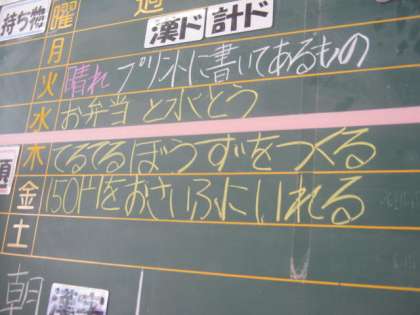 持ち物 曜 週
漢ド 計ド
月
火 晴れ プリントに書いてあるもの
水 お弁当 と水とう
木 てるてるぼうずをつくる
金 150円をおさいふにいれる
土
朝